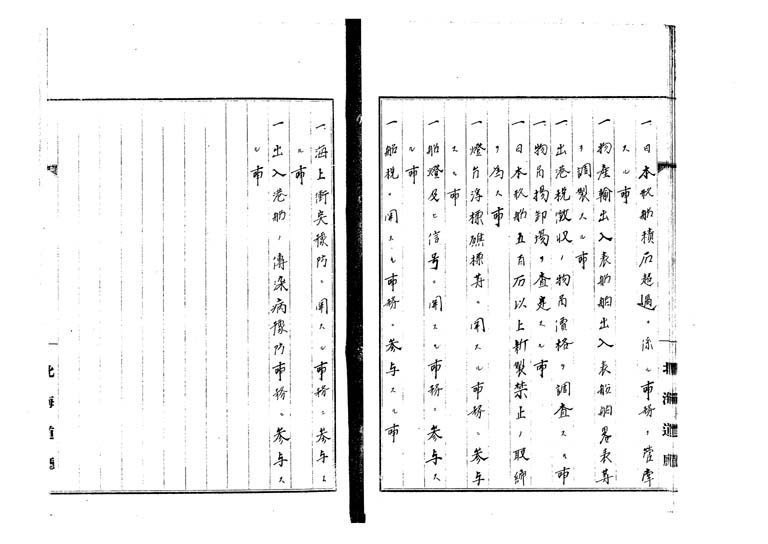 一日本形船積石超過ニ係ル市務ヲ管摩
スル市
一物産輸出入表船舶出入表船舶畧表等
ヲ調製スル市
一出港税徴収ノ物品價格ヲ調査スル市
一物品揚卸場ヲ査定スル市
一日本形船五百石以上新製禁止ノ取締
ヲ為ス市
一燈台浮標礁標等ニ関スル市務ニ参与
スル市
一船燈及ヒ信号ニ関スル市務ニ参与ス
ル市
一船税ニ関スル市務ニ参与スル市
一海上衝突豫防ニ関スル市務ニ参与ス
ル市
一出入港船ノ傳染病豫防市務ニ参与ス
ル市
北海道廳